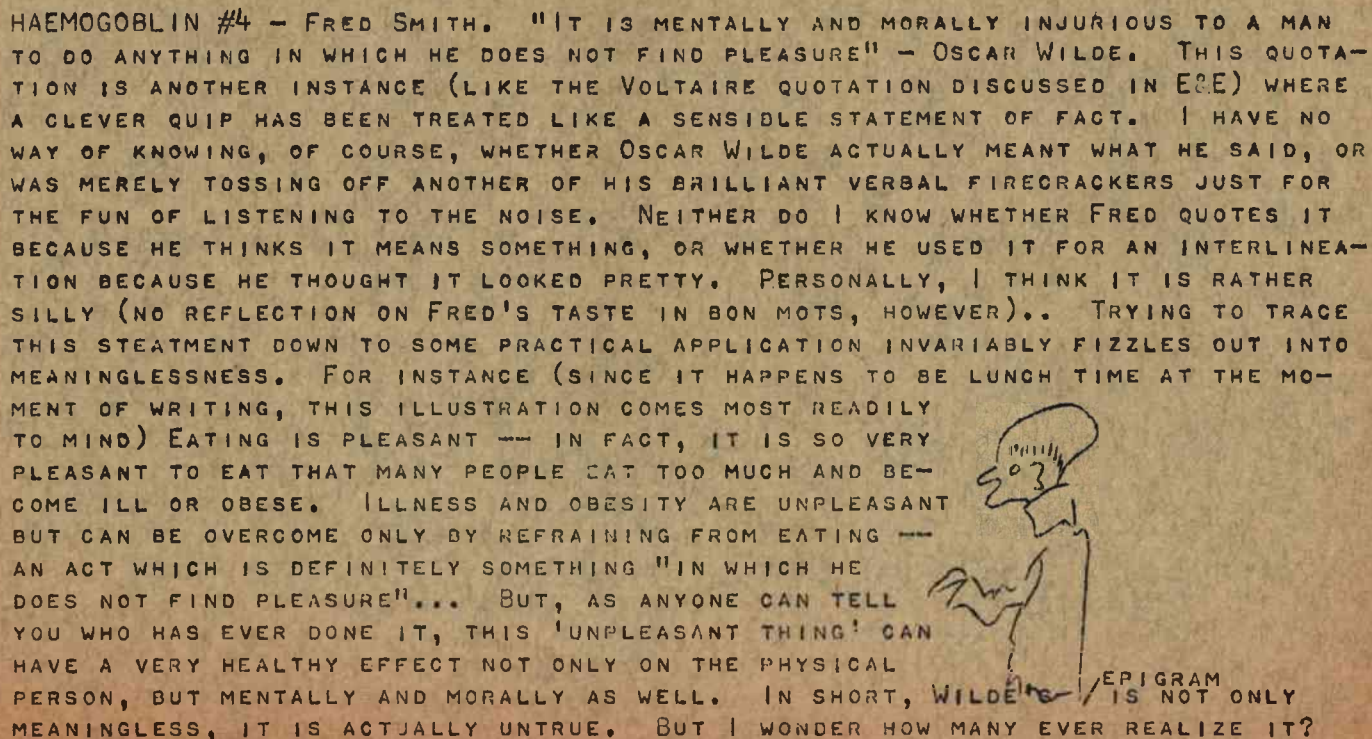 HAEMOGOBLIN #4 – FRED SMITH. "IT IS MENTALLY AND MORALLY INJURIOUS TO A MAN
TO DO ANYTHING IN WHICH HE DOES NOT FIND PLEASURE" – OSCAR WILDE. THIS QUOTA–
TION IS ANOTHER INSTANCE (LIKE THE VOLTAIRE QUOTATION DISCUSSED IN E&E) WHERE
A CLEVER QUIP HAS BEEN TREATED LIKE A SENSIBLE STATEMENT OF FACT. I HAVE NO
WAY OF KNOWING, OF COURSE, WHETHER OSCAR WILDE ACTUALLY MEANT WHAT HE SAID, OR
WAS MERELY TOSSING OFF ANOTHER OF HIS BRILLIANT VERBAL FIRECRACKERS JUST FOR
THE FUN OF LISTENING TO THE NOISE. NEITHER DO I KNOW WHETHER FRED QUOTES IT
BECAUSE HE THINKS IT MEANS SOMETHING, OR WHETHER HE USED IT FOR AN INTERLINEA–
TION BECAUSE HE THOUGHT IT LOOKED PRETTY. PERSONALLY, I THINK IT IS RATHER
SILLY (NO REFLECTION ON FRED'S TASTE IN BON MOTS, HOWEVER).. TRYING TO TRACE
THIS STEATMENT DOWN TO SOME PRACTICAL APPLICATION INVARIABLY FIZZLES OUT INTO
MEANINGLESSNESS. FOR INSTANCE (SINCE IT HAPPENS TO BE LUNCH TIME AT THE MO–
MENT OF WRITING, THIS ILLUSTRATION COMES MOST READILY
TO MIND) EATING IS PLEASANT –– IN FACT, IT IS SO VERY
PLEASANT TO EAT THAT MANY PEOPLE EAT TOO MUCH AND BE–
COME ILL OR OBESE. ILLNESS AND OBESITY ARE UNPLEASANT
BUT CAN BE OVERCOME ONLY BY REFRAINING FROM EATING ––
AN ACT WHICH IS DEFINITELY SOMETHING "IN WHICH HE
DOES NOT FIND PLEASURE"... BUT, AS ANYONE CAN TELL
YOU WHO HAS EVER DONE IT, THIS 'UNPLEASANT THING' CAN
HAVE A VERY HEALTHY EFFECT NOT ONLY ON THE PHYSICAL
PERSON, BUT MENTALLY AND MORALLY AS WELL. IN SHORT, WILDE'S EPIGRAM IS NOT ONLY
MEANINGLESS, IT IS ACTUALLY UNTRUE. BUT I WONDER HOW MANY EVER REALIZE IT?